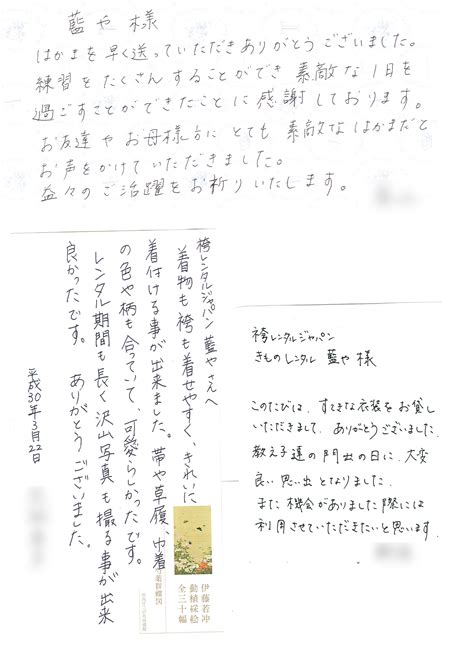 藍や 様
はかまを早く送っていただきありがとうございました。
練習をたくさんすることができ 素敵な1日を
過ごすことができたことに感謝しております。
お友達やお母様方に とても 素敵なはかまだと
お声をかけていただきました。
益々のご活躍をお祈りいたします。
袴レンタルジャパン 藍やさんへ
着物も袴も着せやすく、きれいに
着付ける事が出来ました。帯や草履、巾着
の色や柄も合っていて、可愛らしかったです。
レンタル期間も長く沢山写真も撮る事が出来
良かったです。 ありがとうございました。
平成30年3月22日
伊藤若冲
動植綵絵
全三十幅
袴レンタルジャパン
きものレンタル 藍や 様
このたびは、すてきな衣装をお貸し
いただきまして、ありがとうございました。
教え子達の門出の日に、大変
良い思い出となりました。
また機会がありました際には
利用させていただきたいと思います。